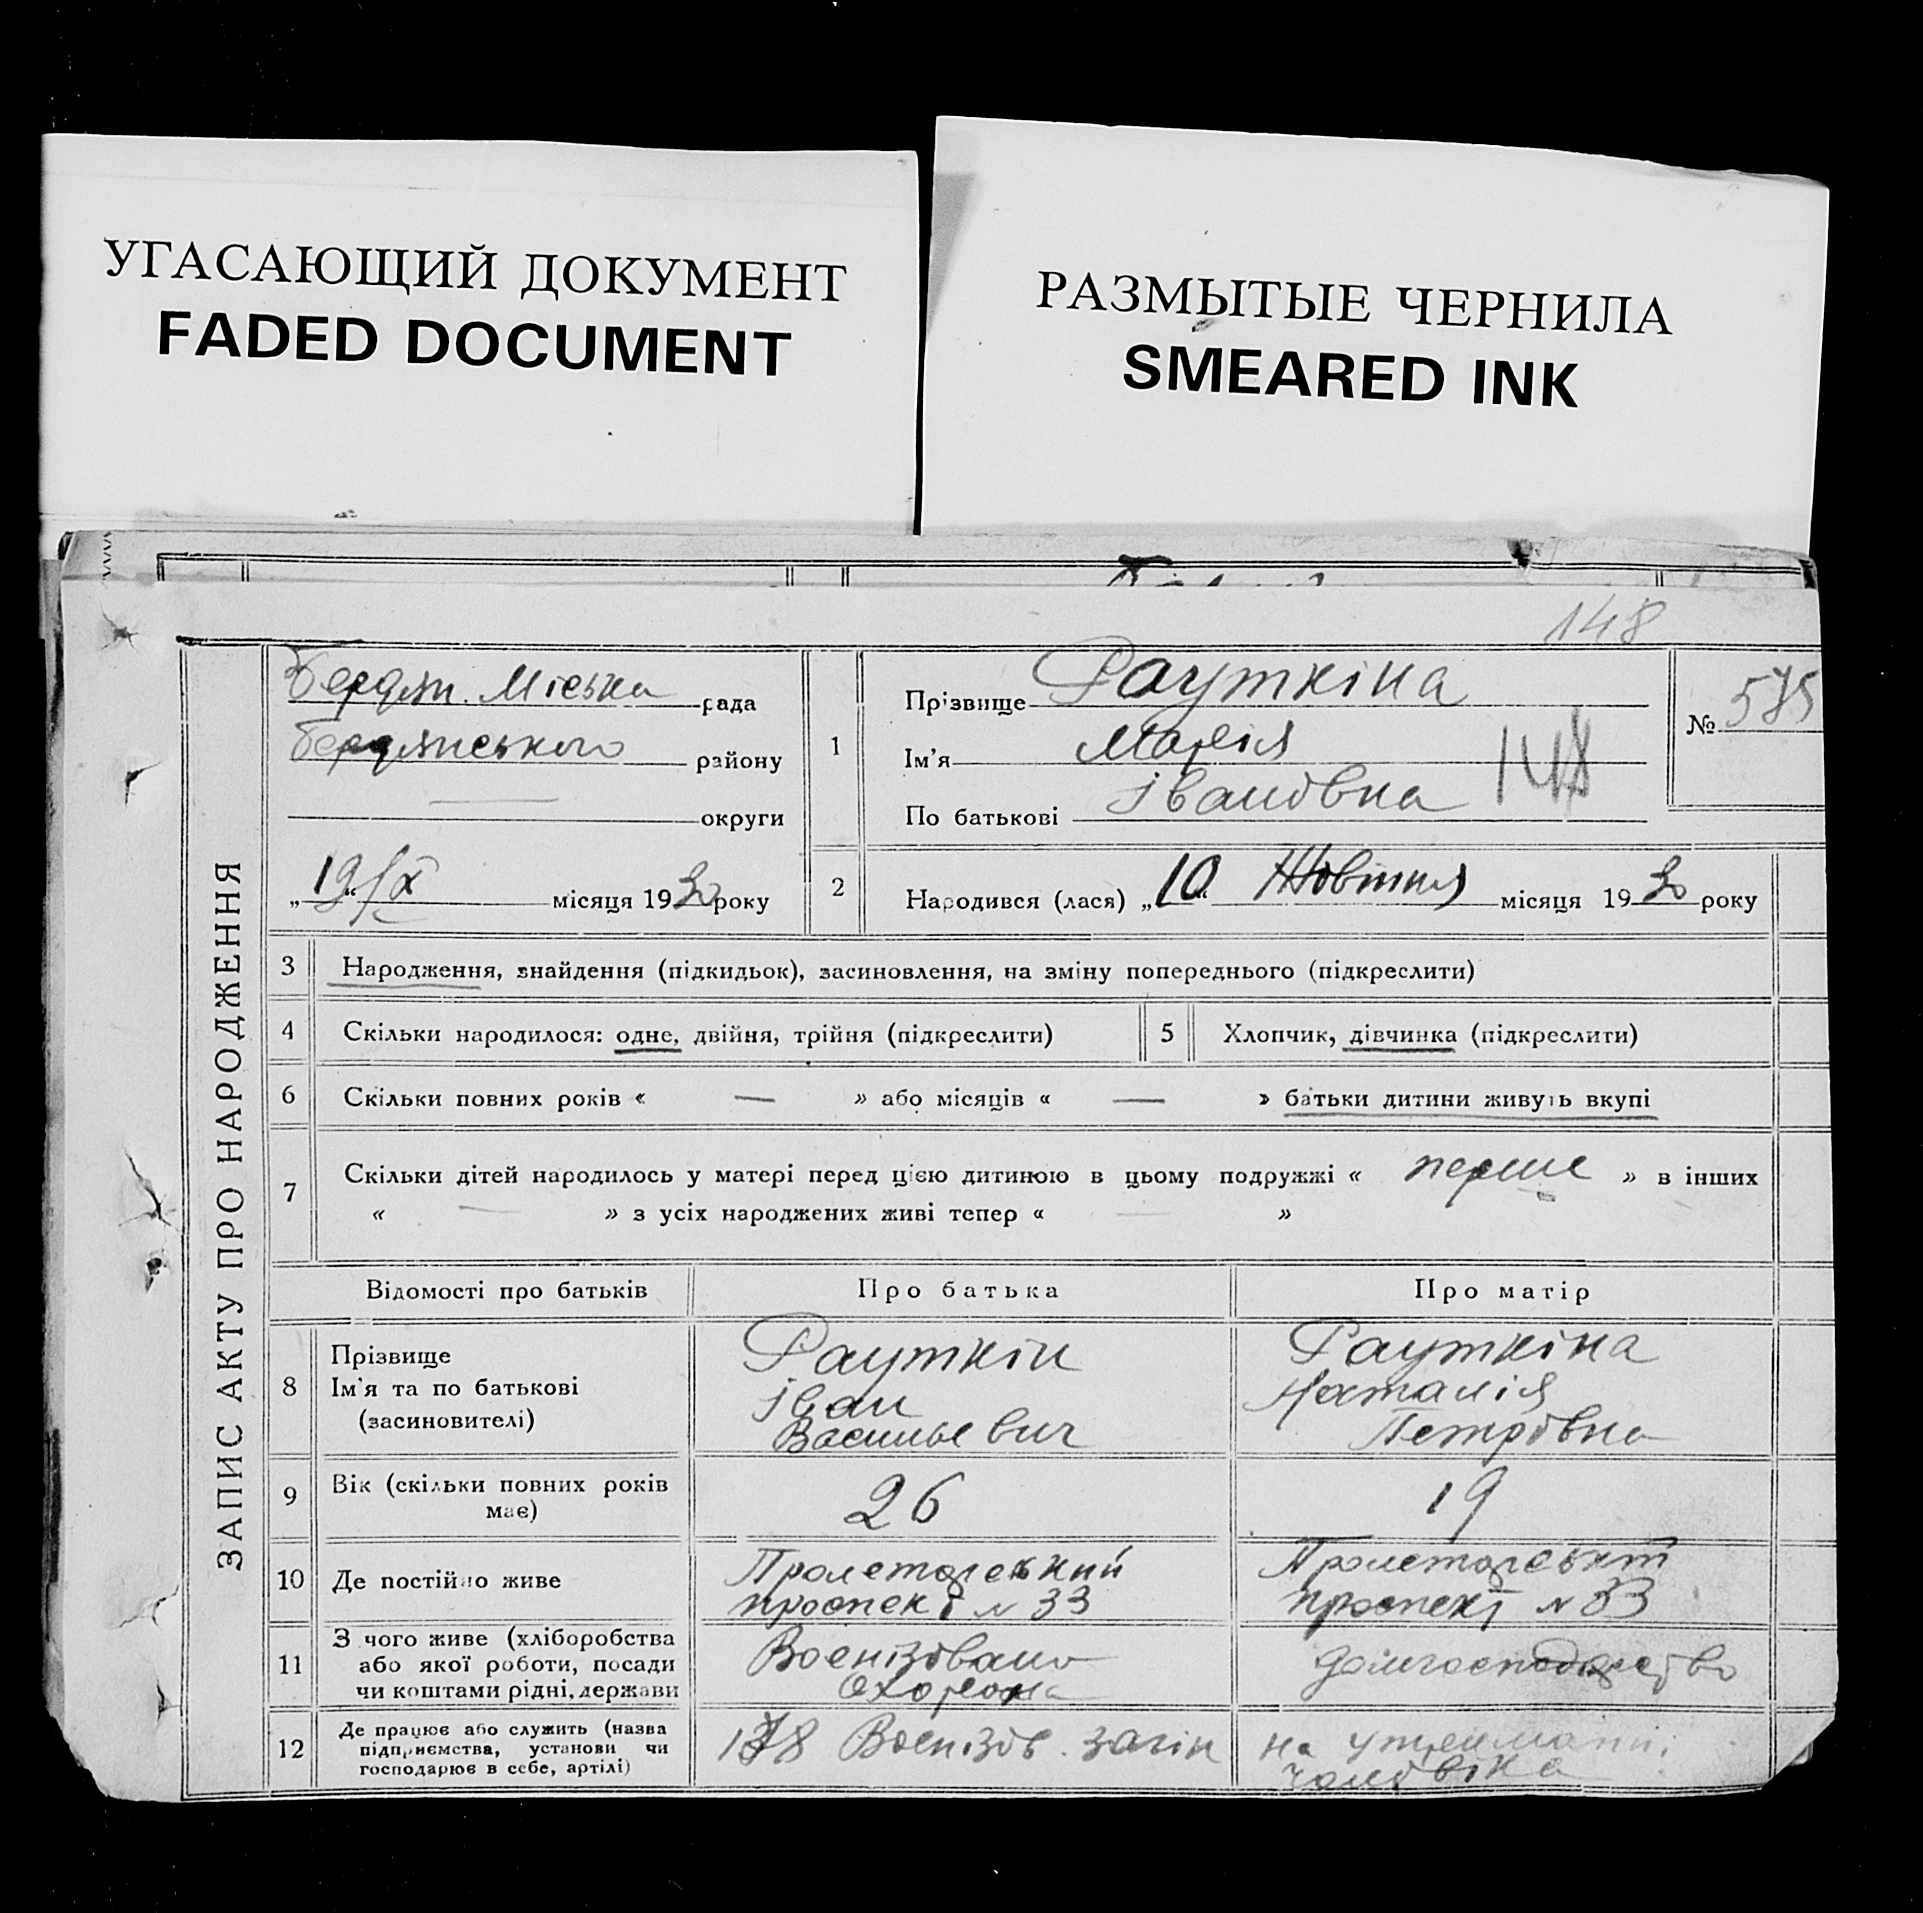 УГАСАЮЩИЙ ДОКУМЕНТ
FADED DOCUMENT
РАЗМЫТЫЕ ЧЕРНИЛА
SMEARED INK
148
ЗАПИС АКТУ ПРО НАРОДЖЕННЯ
Бердян. Міська рада
Бердянського району
— округи
„19“/X місяця 1930 року
1
Прізвище Рауткіна
Ім'я Марія
По батькові Івановна
148
№ 575
2
Народився (лася) „10“ Жовтня місяця 1930 року
3 Народження, знайдення (підкидьок), засиновлення, на зміну попереднього (підкреслити)
4 Скільки народилося: одне, двійня, трійня (підкреслити)
5 Хлопчик, дівчинка (підкреслити)
6 Скільки повних років « — » або місяців « — » батьки дитини живуть вкупі
7 Скільки дітей народилось у матері перед цією дитиною в цьому подружжі « перше » в інших
« — » з усіх народжених живі тепер « — »
Відомості про батьків Про батька Про матір
8 Прізвище
Ім'я та по батькові
(засиновителі)
Рауткін
Іван
Васильевич
Рауткіна
Наталія
Петрівна
9 Вік (скільки повних років
має)
26
19
10 Де постійно живе
Пролетарський
проспект № 33
Пролетарський
проспект № 33
11 З чого живе (хліборобства
або якої роботи, посади
чи коштами рідні, держави
Воєнізована
Охорона
домгосподарство
12 Де працює або служить (назва
підприємства, установи чи
господарює в себе, артілі)
Воєнізов. загін
на утриманні
чоловіка